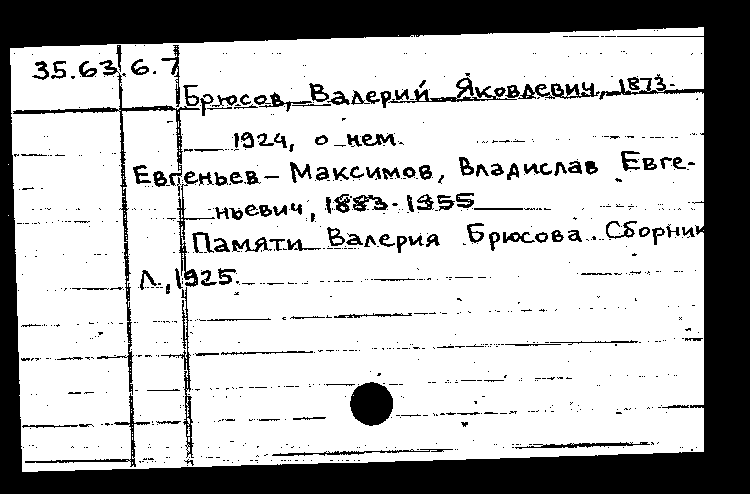 35.63.6.7
Брюсов, Валерий Яковлевич, 1873-
1924, о нем.
Евгеньев-Максимов, Владислав Евге-
ньевич, 1883-1955
Памяти Валерия Брюсова. Сборник
Л., 1925.